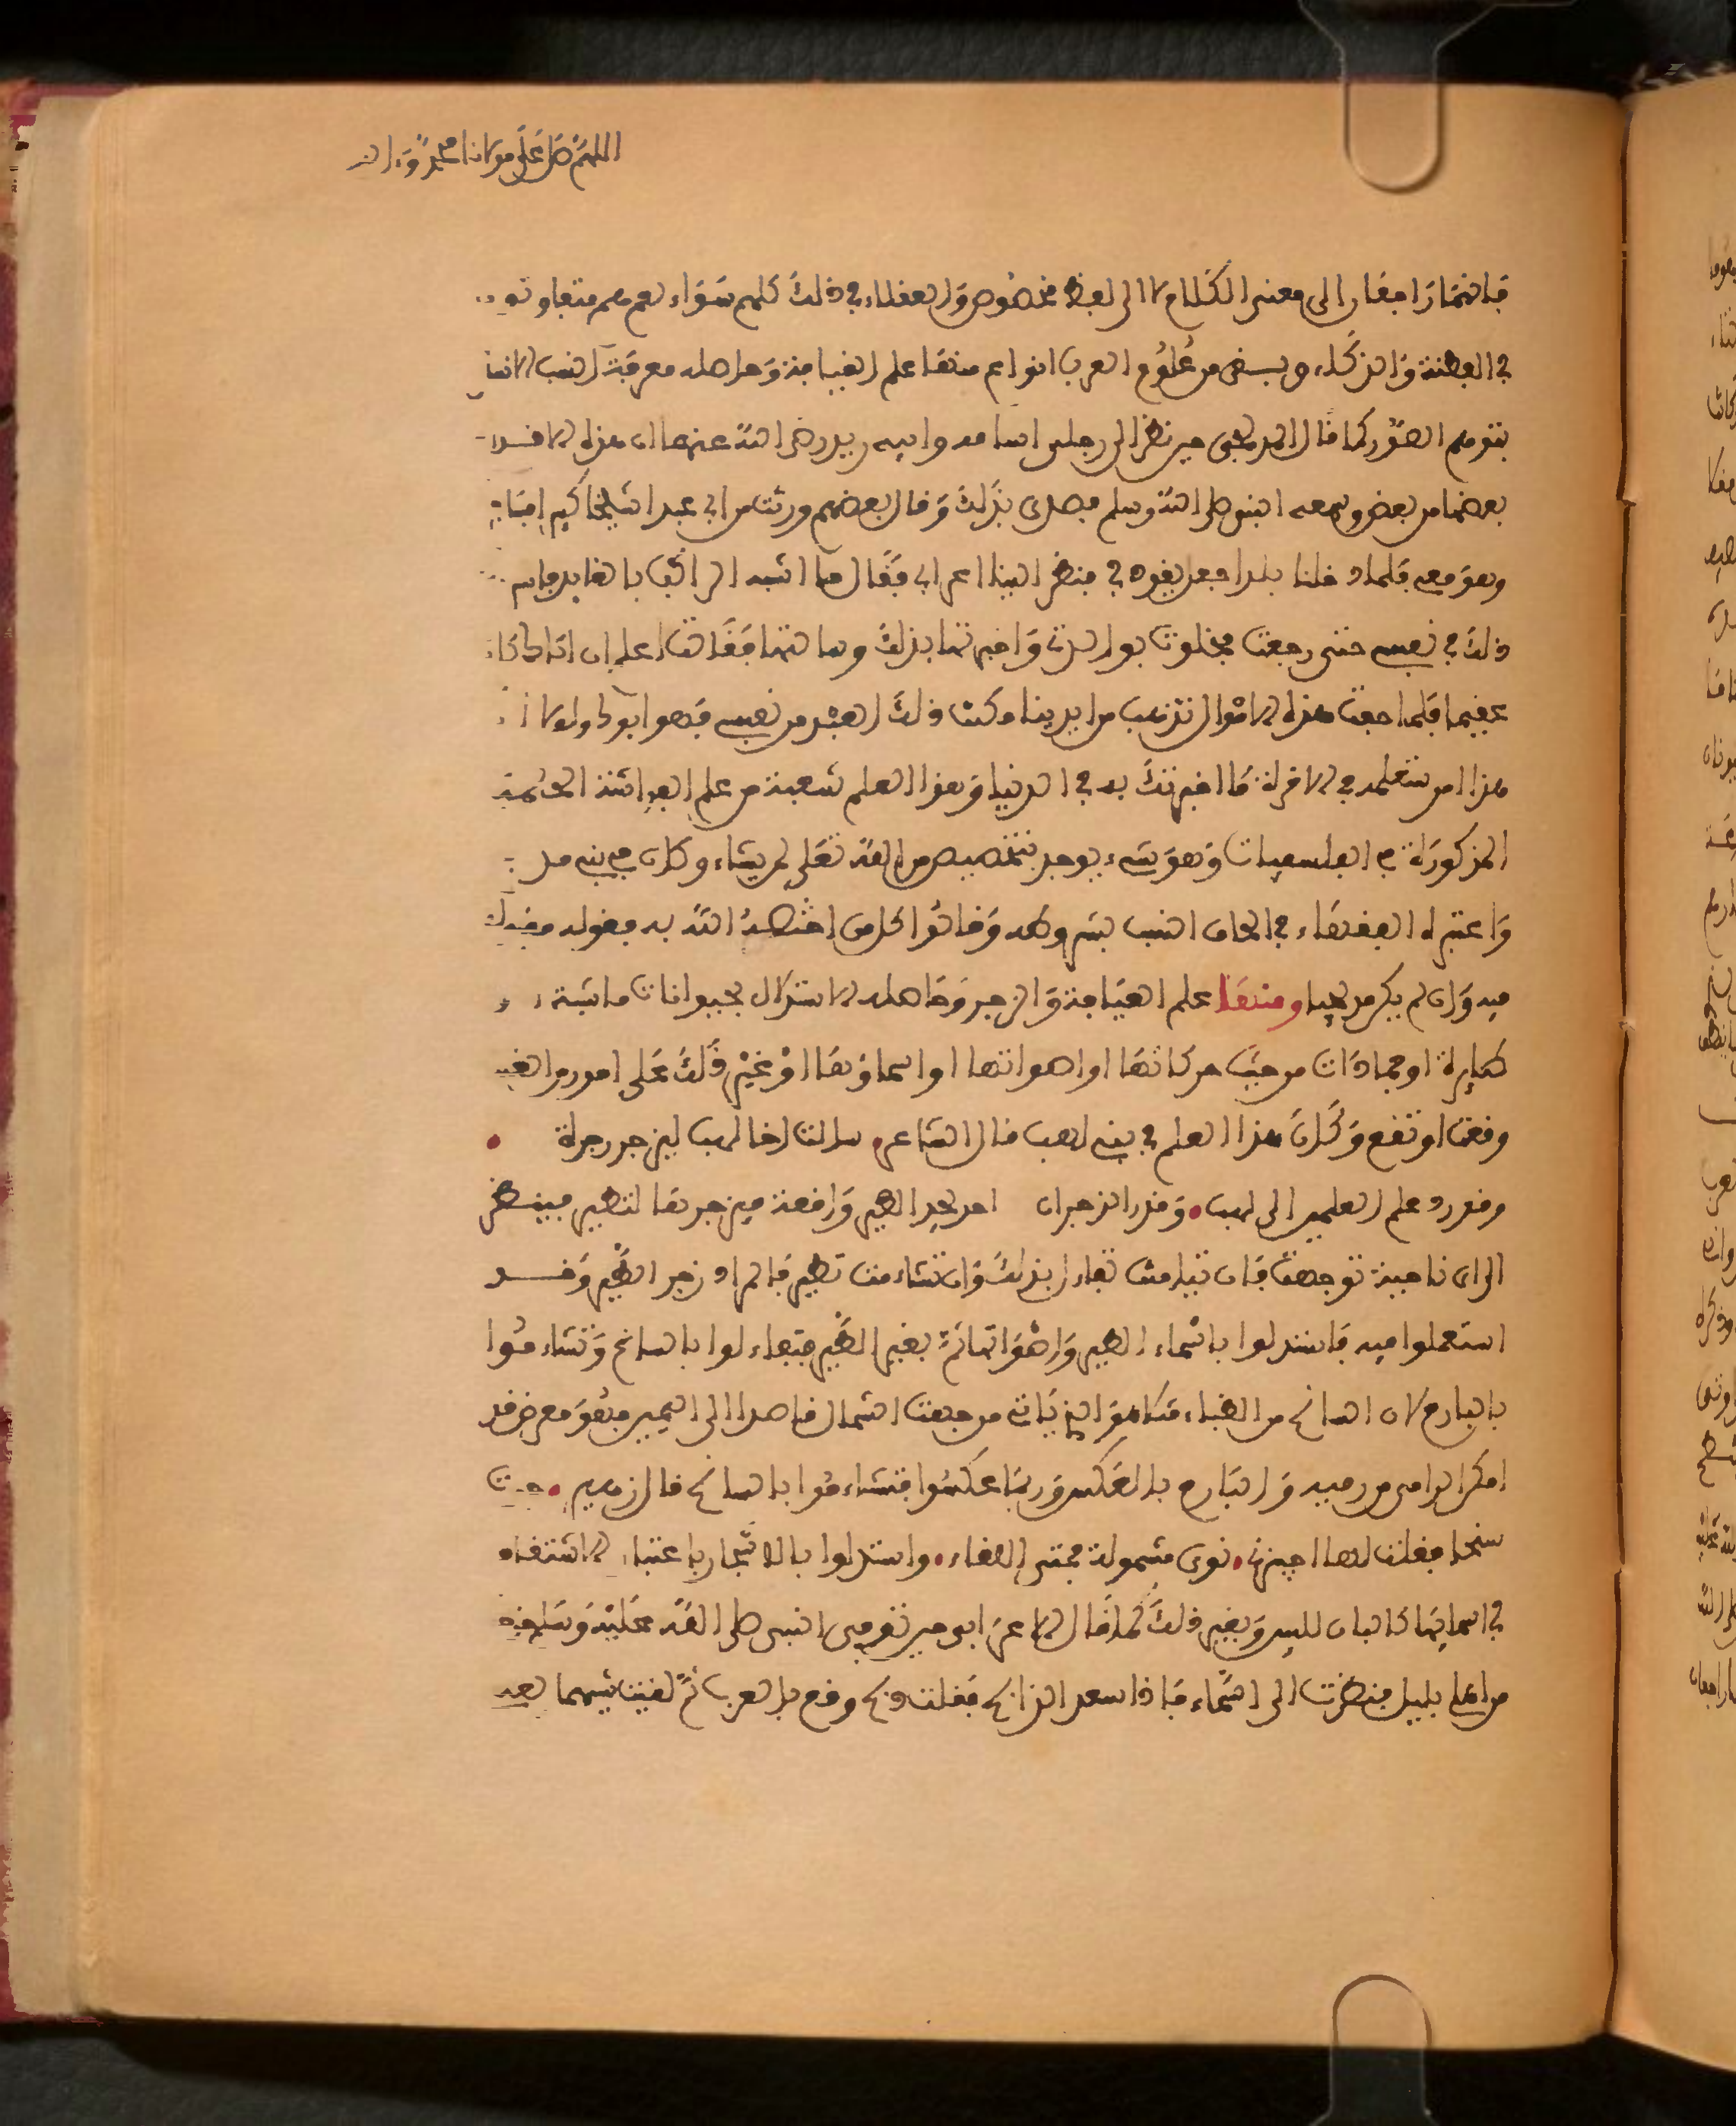 اللهم صل على مولانا محمد وءاله
فانما راجعان الى معنى الكلام لا الى لفظ مخصوص والعقلاء في ذلك كلهم سواء نعم هم متفاوتون
في الفطنة والذكاء وبسفى من علوم العرب انواع منها علم القيافة وحاصله معرفة النسب
بتوهم الصور كما قال المدلجي حين نظر الى رجلي اسامه وابيه زيد رضي الله عنهما ان هذه الاقدام
بعضها من بعض وسمعه النبي صلى الله وسلم فصدق بذلك وقال بعضهم ورثت من ابي عبدا شيخا
وهو معي فلما دخلنا بلدا جعل يقوده فنظر الينا اعرابي فقال ما اشبه الراكب بالقايد
ذلك في نفسي حتى رجعت فخلوت بوالدتي واخبرتها بذلك وسالتها فقالت اعلم ان اباك كان
عقيما فلما خفت هذه الاموال تذهب من ايدينا مكنت ذلك العبد من نفسي فهو ابوك ولولا ان
هذا امر ستعلمه في الاخرة ما اخبرتك به في الدنيا وهذا العلم شعبة من علم الفراسة الحكمة
المذكورة في الفلسفيات وهو شيء يوجد بتخصيص من الله تعلى لمن يشاء وكان في بني مد
واعتبره الفقهاء في الحاق النسب بشروطه وقالوا كل من اختصه الله به فقوله مقبول
فيه وان لم يكن مدلجيا ومنها علم العيافة والزجر وحاصله الاستدلال بحيوانات ماشية
طايرة او جمادات من حيث حركاتها او اصواتها او اسماؤها او غير ذلك على امور
وقعت او تقع وكان هذا العلم في بني لهب قال الشاعر سالت اخا لهب ليزجر زجرة
وقد رد علم العلمين الى لهب وقدر الزجران احد يجد الطير واقعة فيزجرها لتطير فينظر
الى اي ناحية توجهت فان تيامنت تفاءل بذلك وان تشاءمت تطير فالمراد زجر الطير وقد
استعملوا فيه فاستدلوا باسماء الطير واصواتها ثم بغير الطير فتفاءلوا بالسانح وتشاءموا
بالبارح لان السانح من الظباء مثلا هو الذي ياتي من جهة الشمال قاصدا الى اليمين فهو معرض قد
امكن الرامي من رميه والبارح بالعكس وربما عكسوا فتشاءموا بالسانح قال زهير جرت
سنحا فقلت لها اجيزي نوى مشمولة فمتى اللقاء واستدلوا بالاشجار باعتبار الاشتقاق
في اسمايها كالبان للبين وبغير ذلك كما قال الاعرابي حين توفي النبي صلى الله عليه وسلم
من اهلي بليل فنظرت الى السماء فاذا سعد الذابح فقلت ذبح وقع بالعرب ثم لقيت شيهما بعد